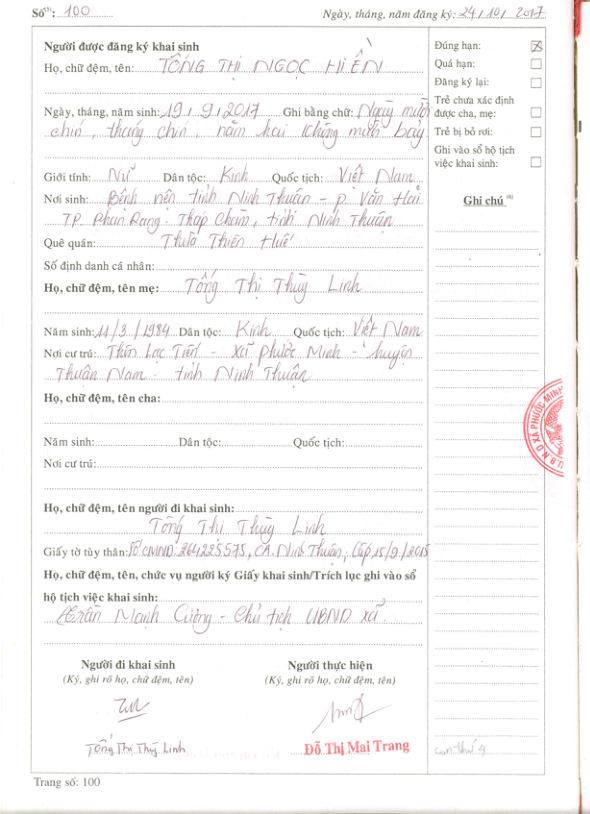 Số⁽³⁾: 100 Ngày, tháng, năm đăng ký: 24/10/2017
Người được đăng ký khai sinh
Họ, chữ đệm, tên: TỐNG THỊ NGỌC HIỀN
Ngày, tháng, năm sinh: 19/9/2017 Ghi bằng chữ: Ngày mười
chín, tháng chín, năm hai không mười bảy
Giới tính: Nữ Dân tộc: Kinh Quốc tịch: Việt Nam
Nơi sinh: Bệnh viện tỉnh Ninh Thuận - P. Văn Hải
TP. Phan Rang - Tháp Chàm, tỉnh Ninh Thuận
Quê quán: Thừa Thiên Huế
Số định danh cá nhân:
Họ, chữ đệm, tên mẹ: Tống Thị Thùy Linh
Năm sinh: 11/3/1984 Dân tộc: Kinh Quốc tịch: Việt Nam
Nơi cư trú: Thôn Lạc Tiến - xã Phước Minh - huyện
Thuận Nam - tỉnh Ninh Thuận
Họ, chữ đệm, tên cha:
Năm sinh: Dân tộc: Quốc tịch:
Nơi cư trú:
Họ, chữ đệm, tên người đi khai sinh:
Tống Thị Thùy Linh
Giấy tờ tùy thân: Số CMND: 264225575, CA. Ninh Thuận, Cấp 15/9/2015
Họ, chữ đệm, tên, chức vụ người ký Giấy khai sinh/Trích lục ghi vào sổ
hộ tịch việc khai sinh:
Trần Mạnh Cường - Chủ tịch UBND xã
Người đi khai sinh
(Ký, ghi rõ họ, chữ đệm, tên)
Tống Thị Thùy Linh
Người thực hiện
(Ký, ghi rõ họ, chữ đệm, tên)
Đỗ Thị Mai Trang
Trang số: 100
Đúng hạn: X
Quá hạn:
Đăng ký lại:
Trẻ chưa xác định
được cha, mẹ:
Trẻ bị bỏ rơi:
Ghi vào sổ hộ tịch
việc khai sinh:
Ghi chú ⁽⁸⁾
U.B.N.D XÃ PHƯỚC MINH
con thứ 4